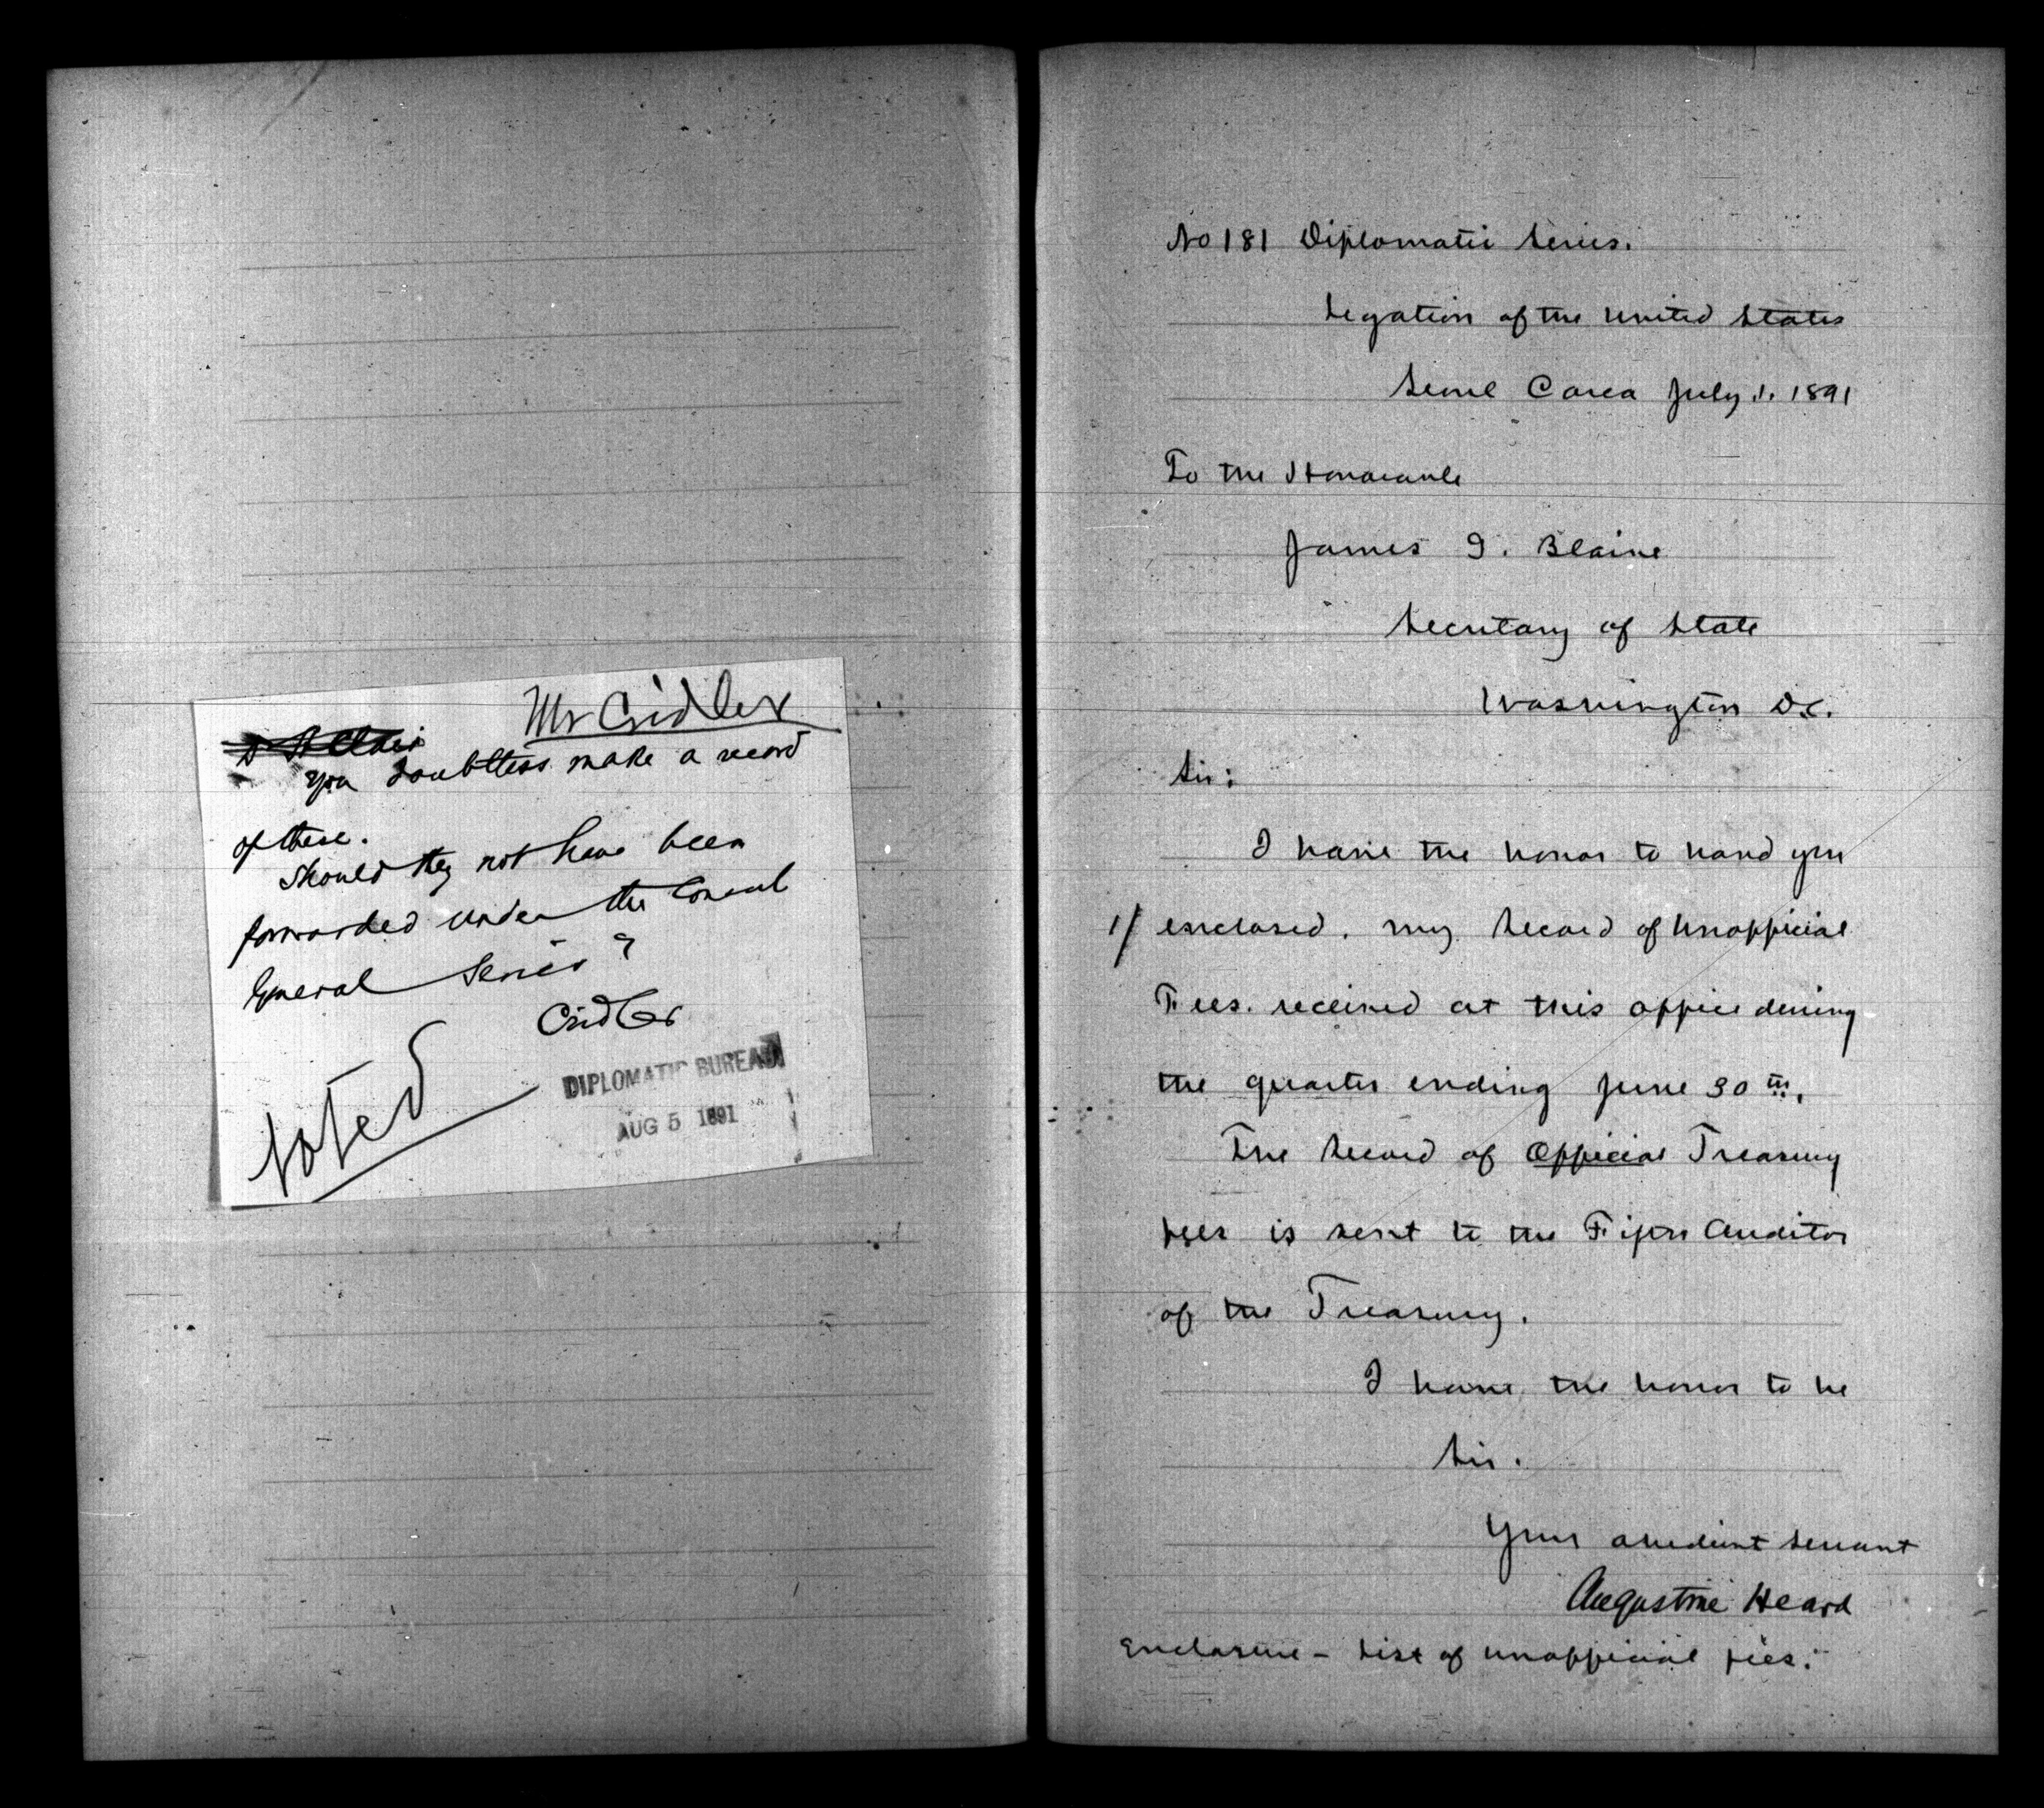 Mr Cridler
You doubtless make a record
of these.
Should they not have been
forwarded under the Consul
General Series?
Cridler
Noted
DIPLOMATIC BUREAU
AUG 5 1891
No 181 Diplomatic Series.
Legation of the United States
Seoul Corea July 1. 1891
To the Honorable
James G. Blaine
Secretary of State
Washington D.C.
Sir:
I have the honor to hand you
1/ enclosed. my Record of Unofficial
Fees. received at this office during
the quarter ending June 30th.
The Record of Official Treasury
fees is sent to the Fifth Auditor
of the Treasury.
I have the honor to be
Sir.
Your obedient servant
Augustine Heard
Enclosure - List of unofficial fees.